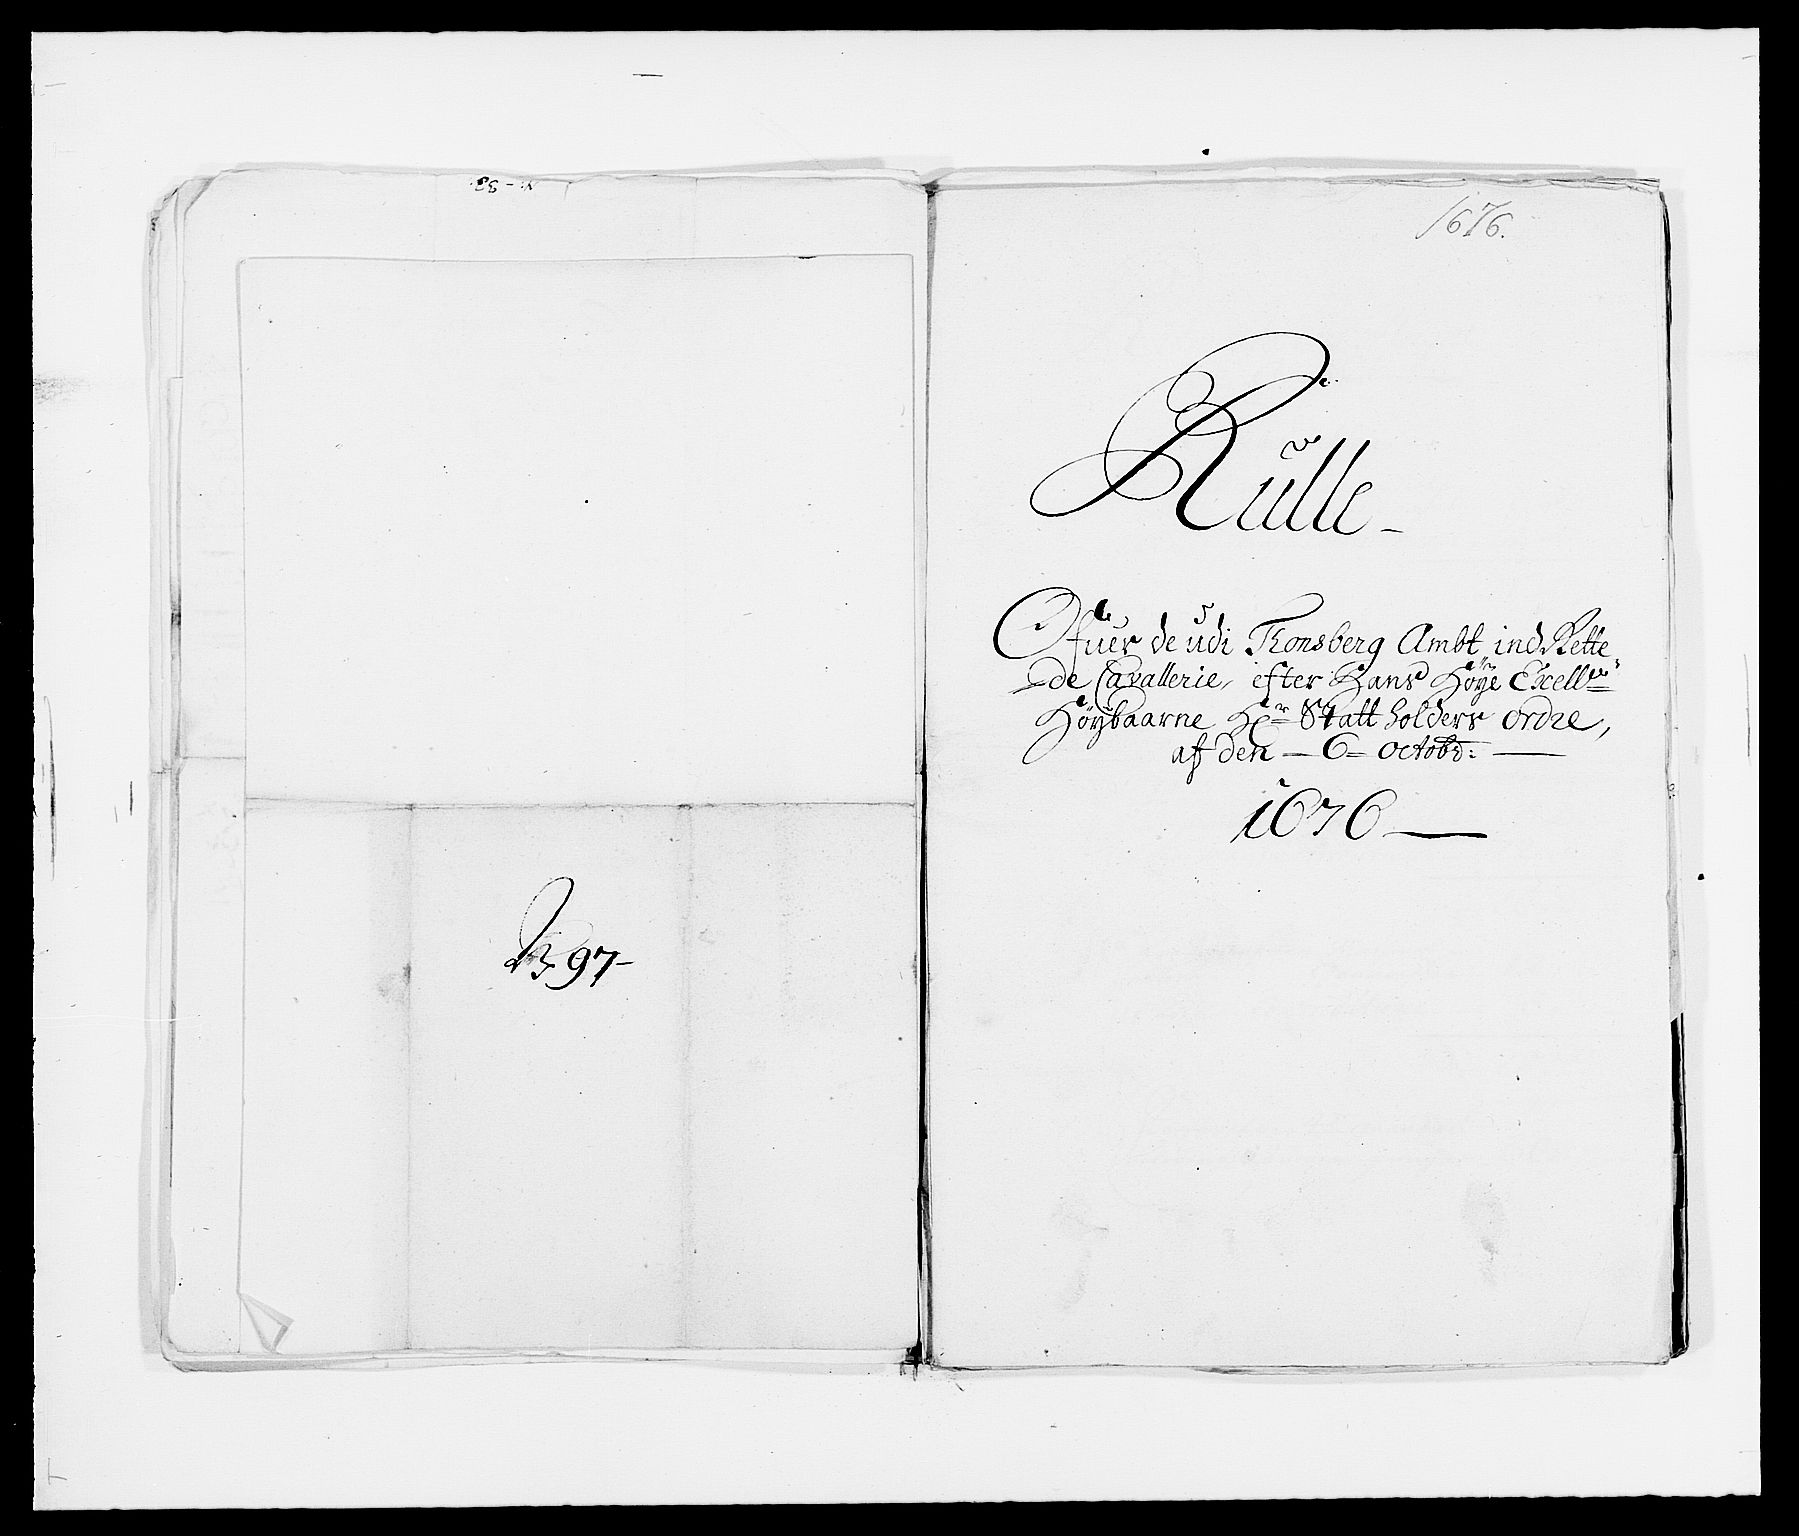 N: - 33.
No 97 -
1676.
Rulle -
Ofuer de udi Tonsberg Ambt indRette
de Cavallerie, efter Hans Höye Excell:
Höybaarne Hr Statt holders ordre,
af den - 6 - octobr: -
1676 -